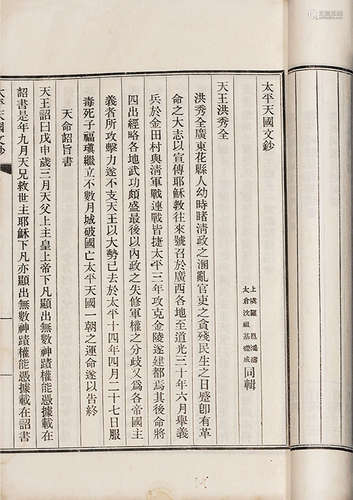 太平天國文鈔
上虞羅邕鴻濤
太倉沈祖基礎成
同輯
天王洪秀全
洪秀全廣東花縣人幼時諸清政之溷亂官吏之貪殘民生之日蹙即有革
命之大志以宣傳耶穌教往來號召於廣西各地至道光三十年六月舉義
兵於金田村與清軍戰連戰皆捷太平三年攻克金陵遂建都焉其後命將
四出經略各地武功頗盛最後以內政之失修軍權之分歧又爲各帝國主
義者所攻擊力遂不支天王以大勢已去於太平十四年四月二十七日服
毒死子福瑱繼立不數月城破國亡太平天國一朝之運命遂以告終
天命詔旨書
天王詔曰戊申歲三月天父上主皇上帝下凡顯出無數神蹟權能憑據載在
詔書是年九月天兄救世主耶穌下凡亦顯出無數神蹟權能憑據載在詔書
太平天國文鈔